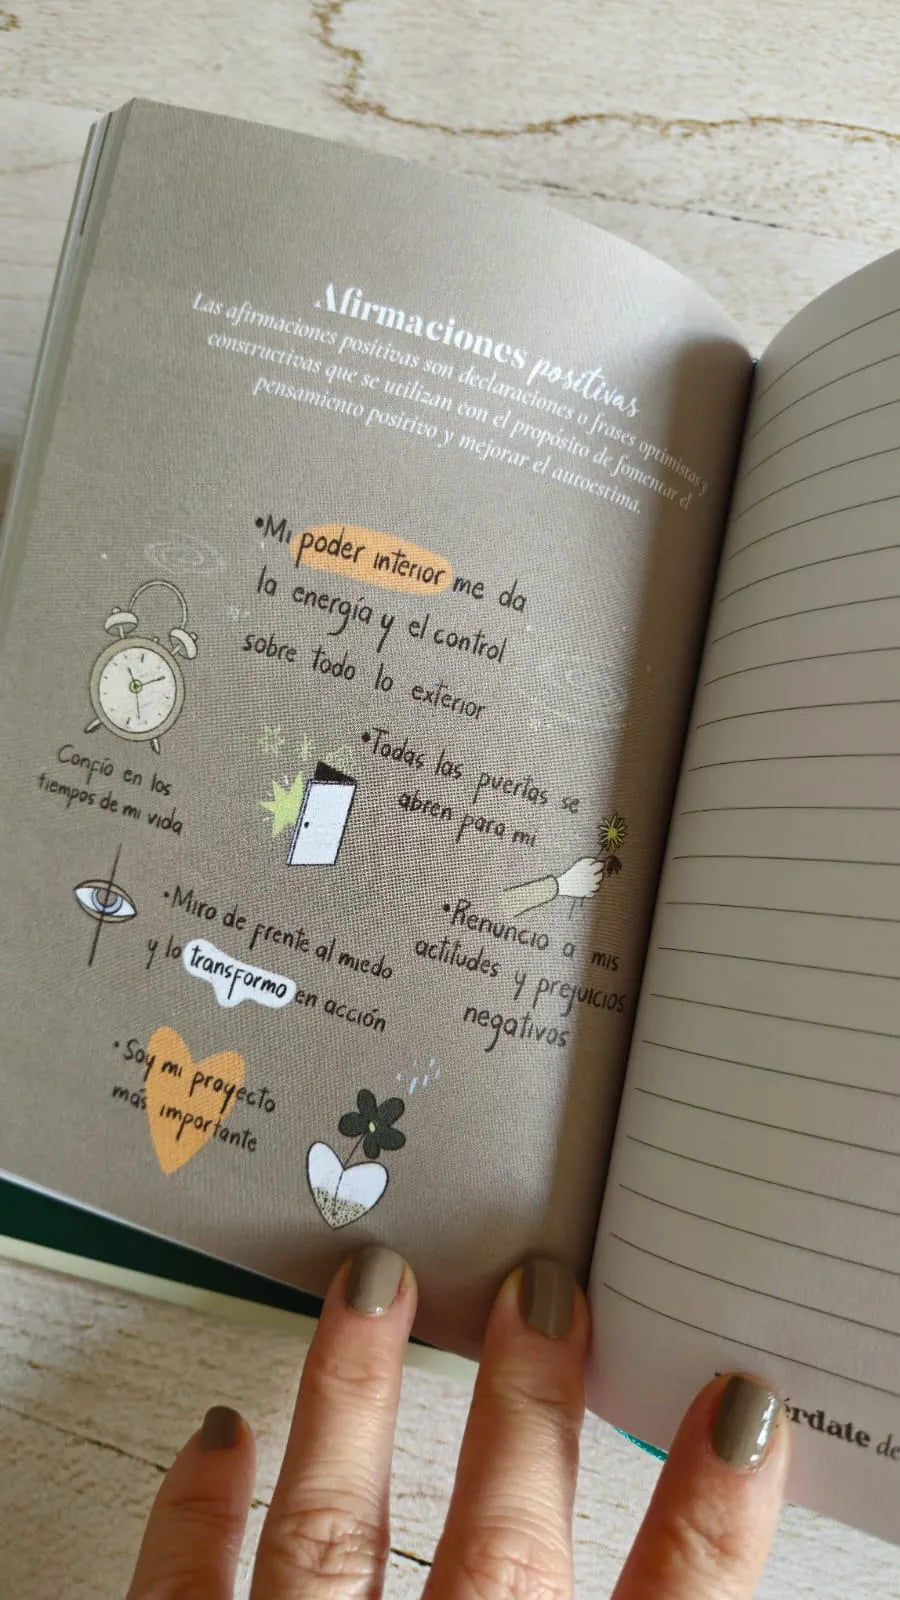 Afirmaciones positivas
Las afirmaciones positivas son declaraciones o frases optimistas y
constructivas que se utilizan con el propósito de fomentar el
pensamiento positivo y mejorar el autoestima.
•Mi poder interior me da
la energía y el control
sobre todo lo exterior
Confío en los
tiempos de mi vida
•Todas las puertas se
abren para mi
•Miro de frente al miedo
y lo transformo en acción
•Renuncio a mis
actitudes y prejuicios
negativos
•Soy mi proyecto
más importante
érdate de